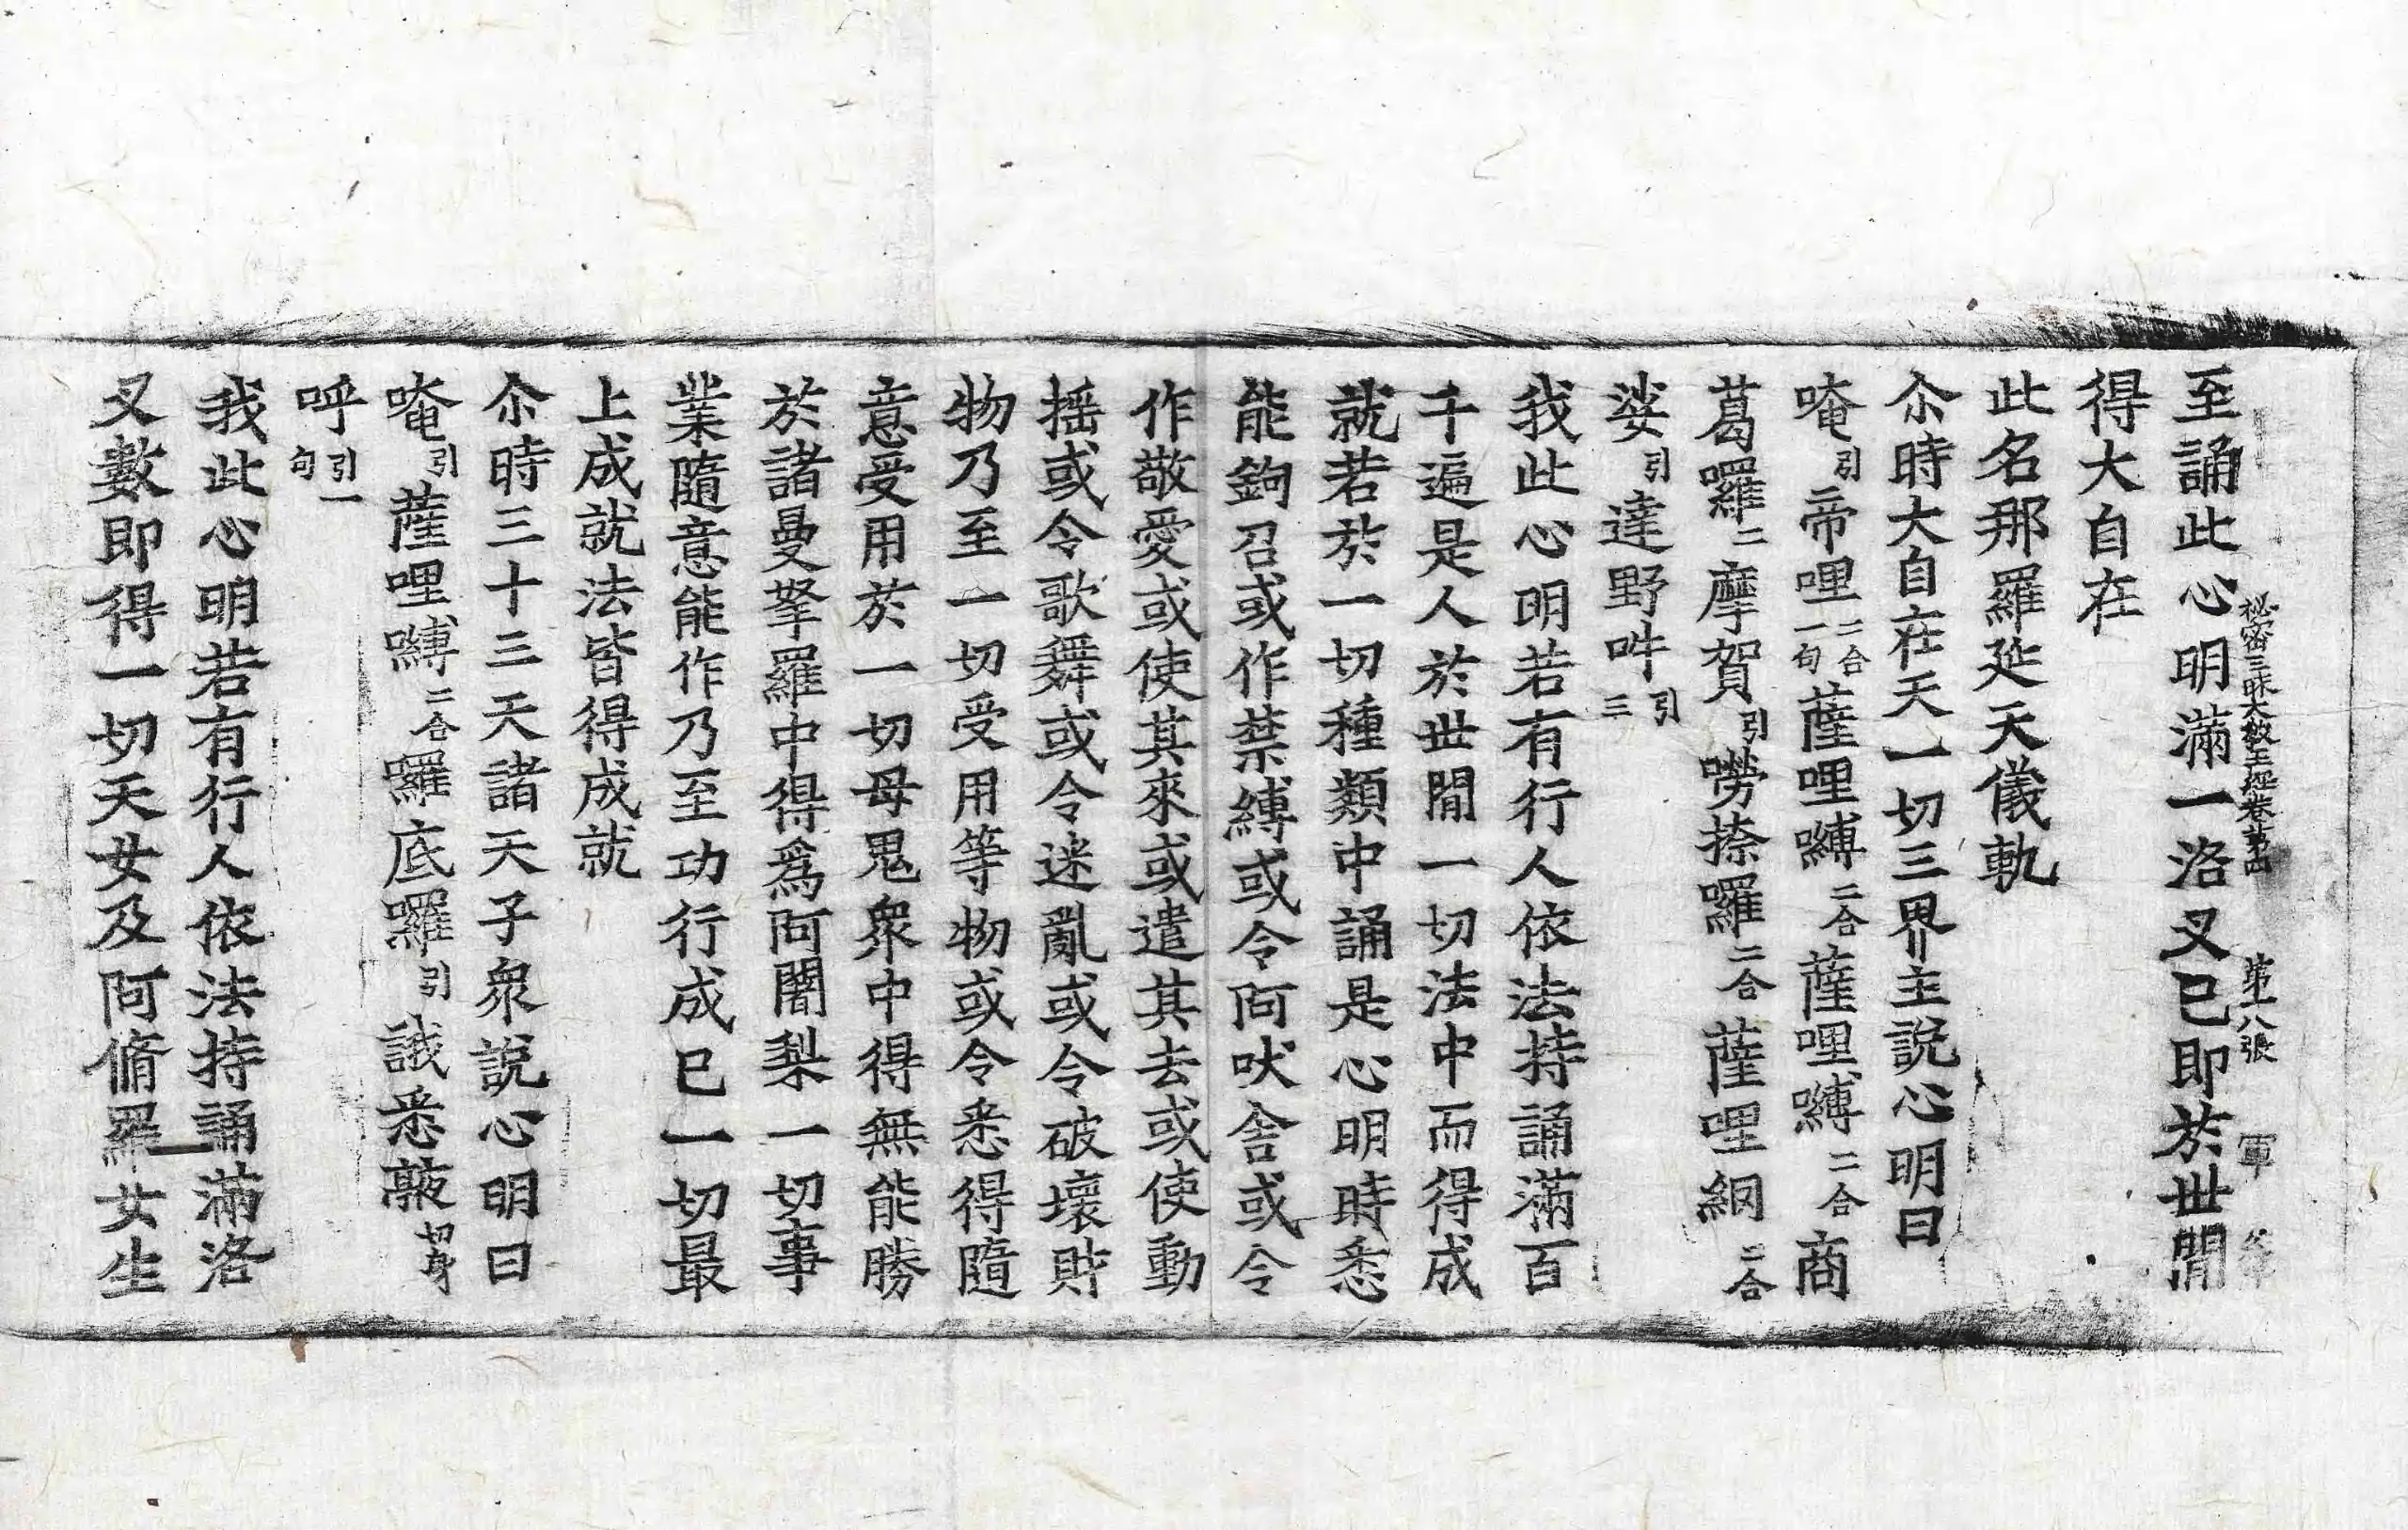 至誦此心明滿一洛叉已即於世間
秘密三昧大敎王經卷第四 第十八張 軍
得大自在
此名那羅延天儀軌
尒時大自在天一切三界主說心明曰
唵引帝哩二合一句薩哩嚩二合薩哩嚩二合商
葛囉二摩賀引嘮捺囉二合薩哩網二合
娑引達野吽引三
我此心明若有行人依法持誦滿百
千遍是人於世間一切法中而得成
就若於一切種類中誦是心明時悉
能鉤召或作禁縛或令阿吠舍或令
作敬愛或使其來或遣其去或使動
搖或令歌舞或令迷亂或令破壞財
物乃至一切受用等物或令悉得隨
意受用於一切母鬼衆中得無能勝
於諸曼拏羅中得爲阿闍梨一切事
業隨意能作乃至功行成已一切最
上成就法皆得成就
尒時三十三天諸天子衆說心明曰
唵引薩哩嚩二合囉底囉引誐悉蔽切身
呼引一句
我此心明若有行人依法持誦滿洛
叉數即得一切天女及阿脩羅女生